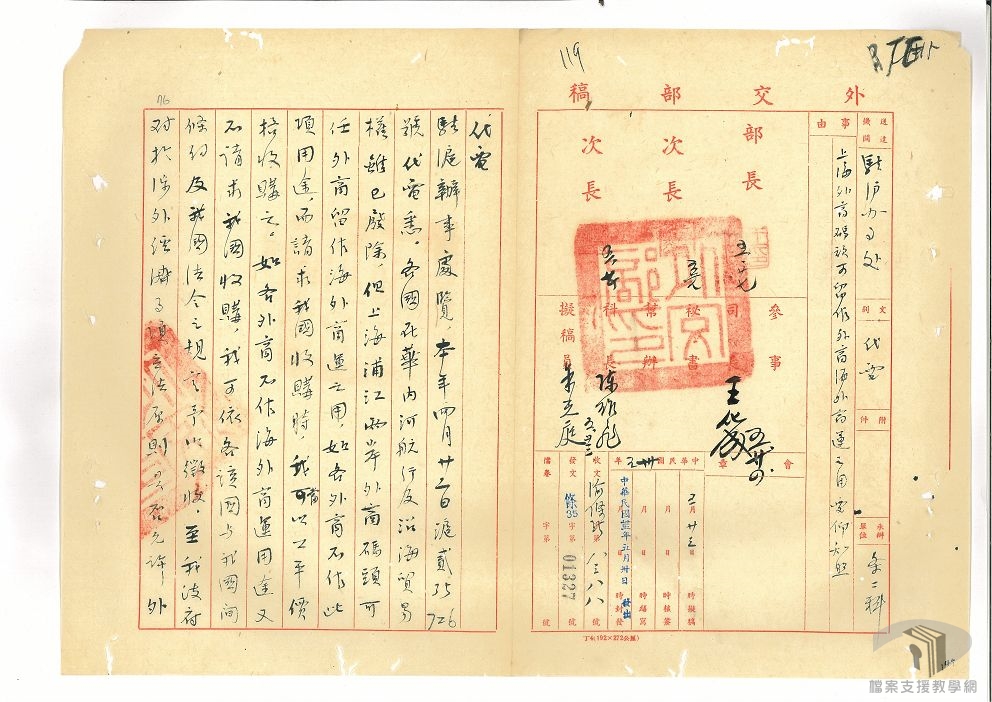 119
外交部稿
送達機關
駐滬辦事處
文別
代電
附件
承辦單位
條二科
事由
上海外商碼頭可留作外商海外商運之用電仰知照
部長
次長
次長
參事
司長
秘書
幫辦
科長
擬稿員
王化成
會章
中華民國
年
五月廿三日時擬稿
月日時核簽
月日時繕寫
中華民國年五月卅日發出
時封發
收文
字第八三八八號
發文條35字第01327號
檔卷字第號
丁4(192×272公厘)
76
代電
駐滬辦事處覽,本年四月廿二日滬貳35 726
號代電悉。各國在華內河航行及沿海貿易
權雖已廢除,但上海浦江兩岸外商碼頭可
任外商留作海外商運之用,如各外商不作此
項用途,而請求我國收購時,我當可以公平價
格收購之。如各外商不作海外商運用途又
不請求我國收購,我可依各該國與我國間
條約及我國法令之規定予以徵收,至我政府
對於涉外經濟事項立法原則,是否允許外
檔案支援教學網